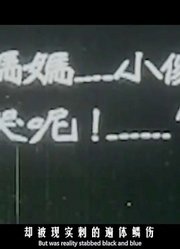 媽媽....小
呢!......"
却被现实刺的遍体鳞伤
But was reality stabbed black and blue